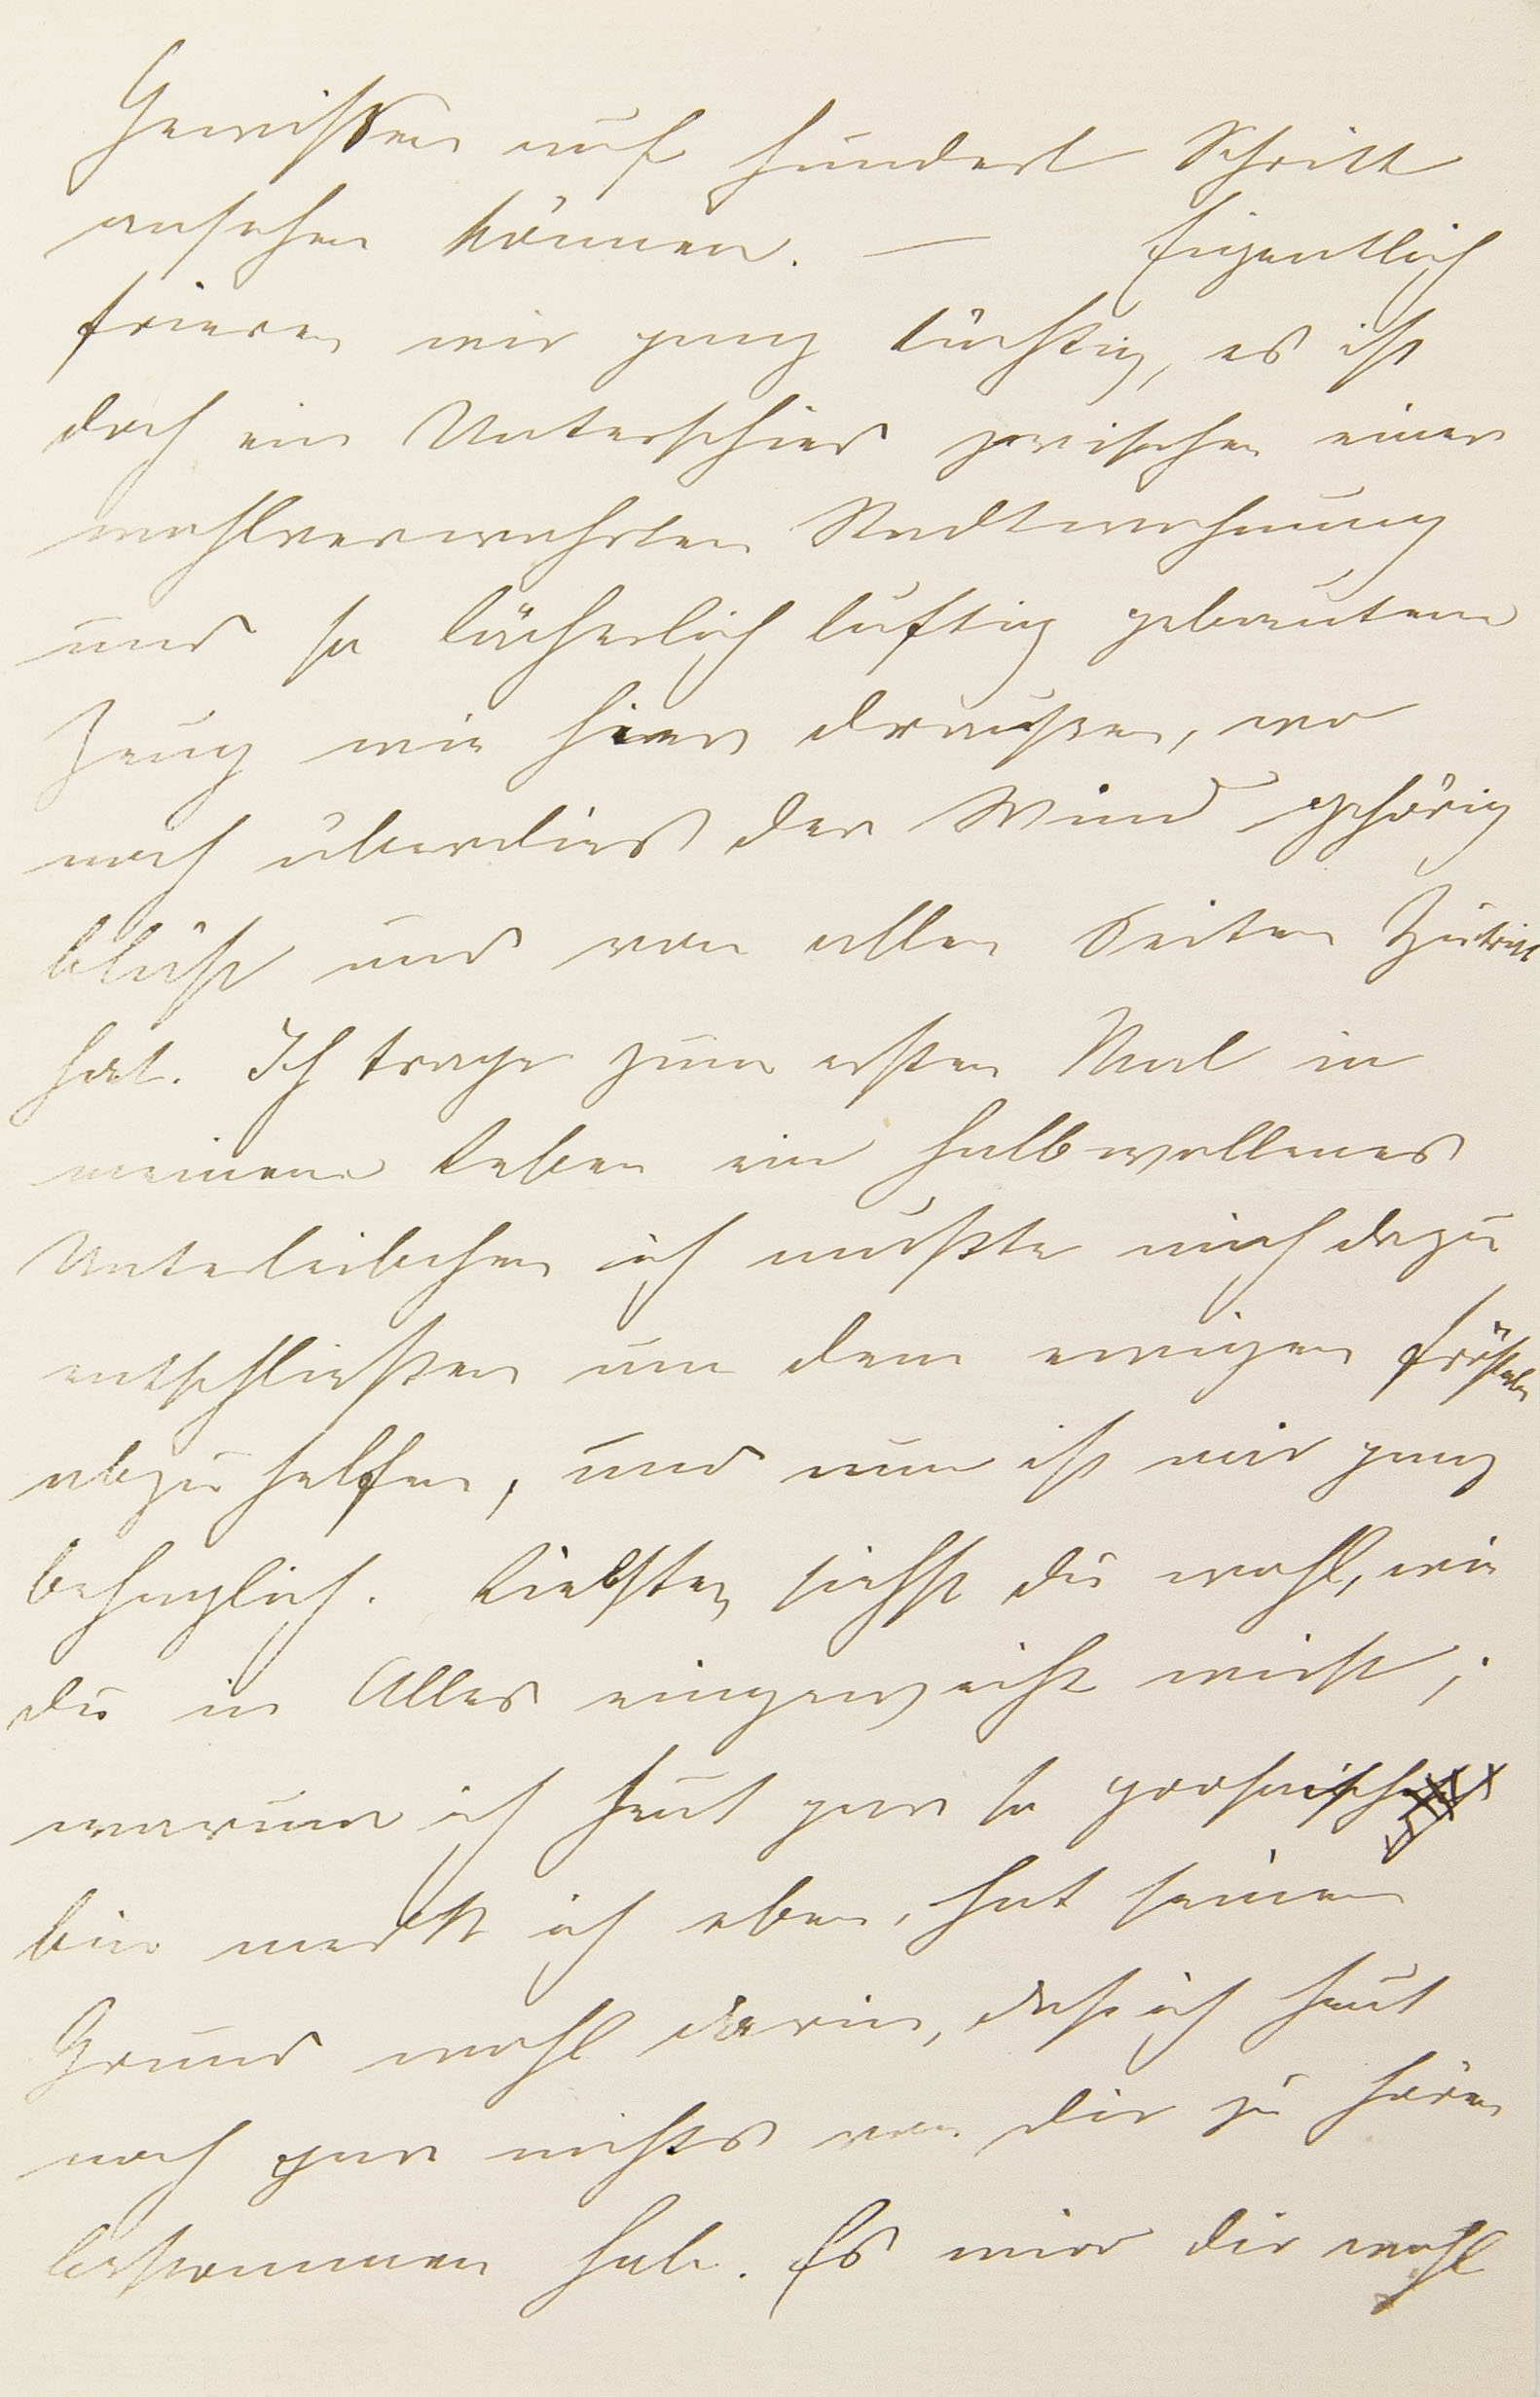 Gewissen auf hundert Schritt
ansehen können. — Eigentlich
frieren wir ganz tüchtig, es ist
doch ein Unterschied zwischen einer
wohlverwahrten Stadtwohnung
und so lächerlich luftig gebautem
Zeug wie hier draußen, wo
noch überdieß der Wind gehörig
bläst und von allen Seiten Zutritt
hat. Ich trage zum ersten Mal in
meinem Leben ein halbwollenes
Unterleibchen ich mußte mich dazu
entschließen um dem ewigen frösteln
abzuhelfen, und nun ist mir ganz
behaglich. Liebster, siehst du wohl, wie
du in Alles eingeweiht wirst;
warum ich heut gar so prosaisch
bin merkt ich eben, hat seinen
Grund wohl darin, daß ich heut
noch gar nichts von dir zu hören
bekommen hab. Es wird dir wohl